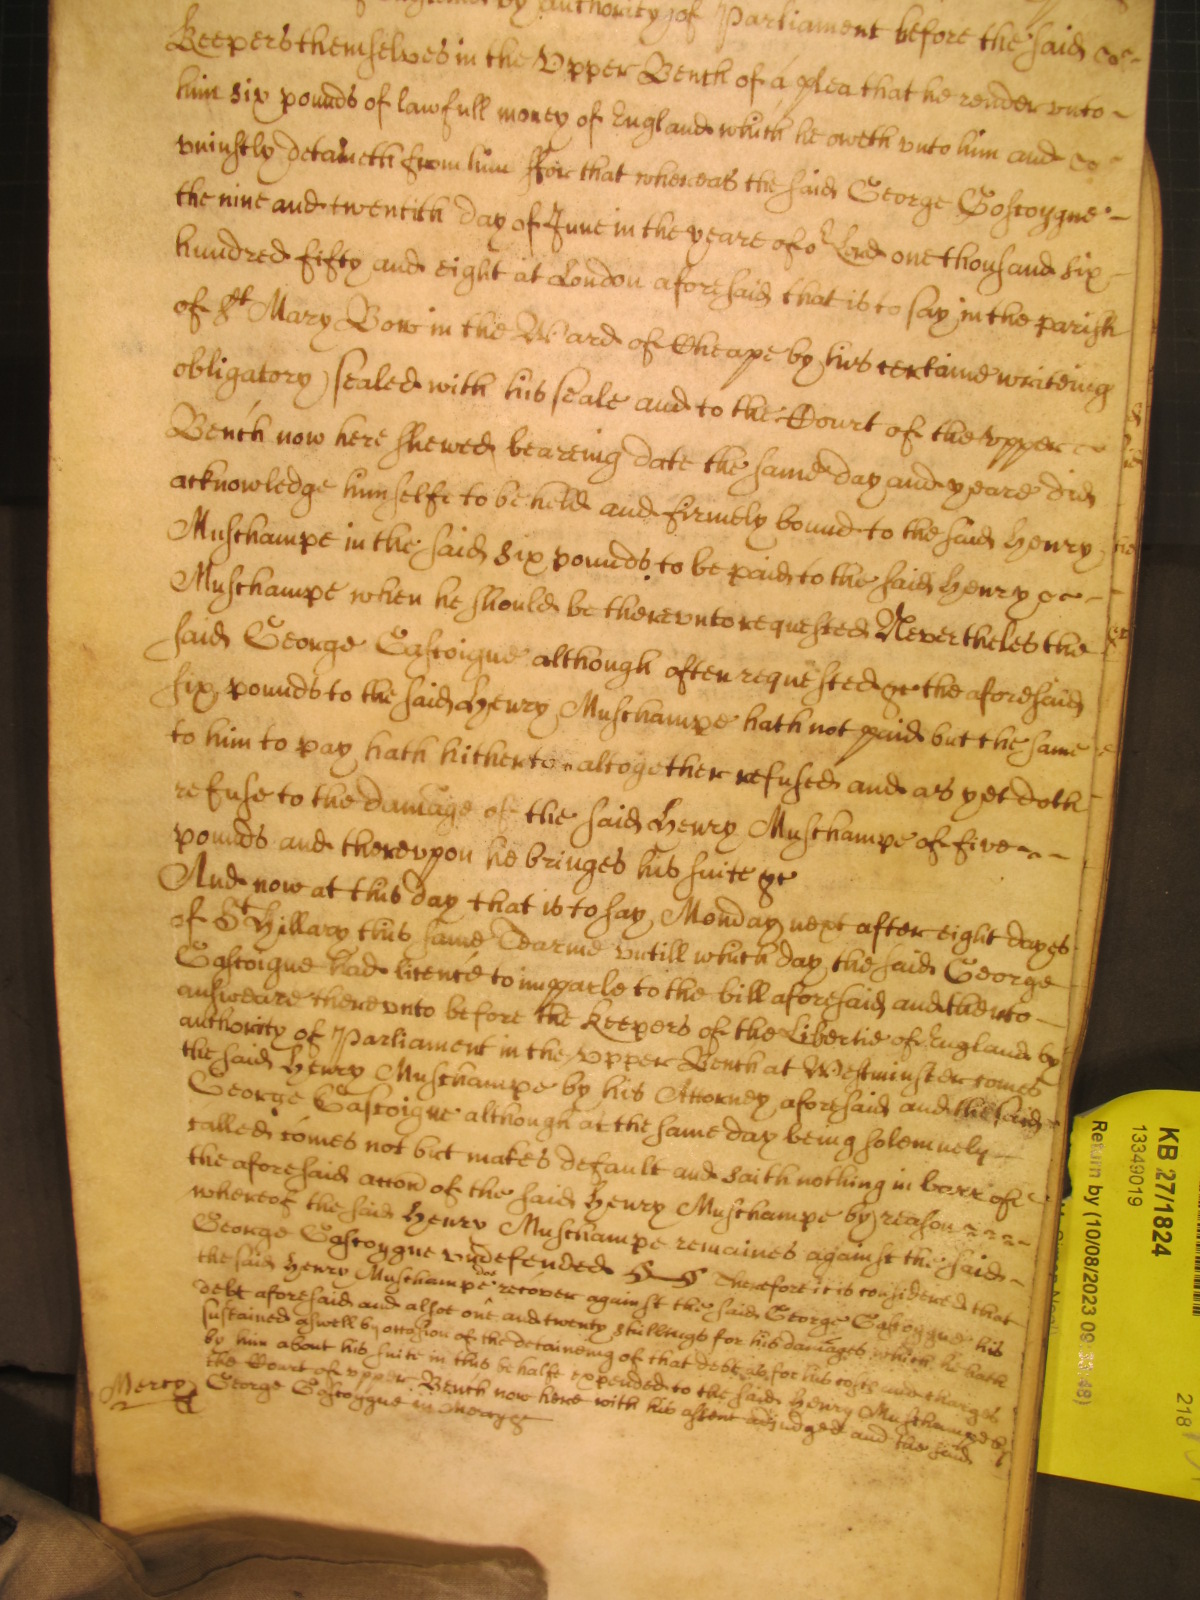 of England by authority of Parliament before the said
Keepers themselves in the Upper Bench of a plea that he render vnto
him six pounds of lawfull money of England which he oweth vnto him and
vniustly detaineth from him ffor that whereas the said George Gascoygne
the nine and twentith day of June in the yeare of or Lord one thousand six
hundred fifty and eight at London aforesaid that is to say in the parish
of St Mary Bow in the Ward of Cheape by his certaine writeing
obligatory sealed with his seale and to the Court of the vpper
Bench now here shewed beareing date the same day and yeare did
acknowledge himselfe to be held and firmely bound to the said Henry
Muschampe in the said six pounds to be paid to the said Henry
Muschampe when he should be therevnto requested Nevertheles the
said George Gascoigne although often requested &c the aforesaid
six pounds to the said Henry Muschampe hath not paid but the same
to him to pay hath hitherto altogether refused and as yet doth
refuse to the damage of the said Henry Muschampe of five
pounds and therevpon he bringes his suite &c
And now at this day that is to say Monday next after eight dayes
of St Hillary this same Tearme vntill which day the said George
Gascoigne had licence to imparle to the bill aforesaid and then to
answeare therevnto before the Keepers of the Libertie of England by
authority of Parliament in the Vpper Bench at Westminster comes
the said Henry Muschampe by his Attorney aforesaid and the said
George Gascoigne although at the same day being solemnely
called comes not but makes default and saith nothing in barr of
the aforesaid accon of the said Henry Muschampe by reason
whereof the said Henry Muschampe remaines against the said
George Gascoygne vndefended Therefore it is considered that
the said Henry Muschampe doe recover against the said George Gascoygne his
debt aforesaid and alsoe one and twenty shillings for his damages which he hath
sustained aswell by occasion of the detaineing of that debt as for his costs and charges
by him about his suite in this behalfe expended to the said Henry Muschampe by
the Court of vpper Bench now here with his assent adjudged and the said
Mercy George Gascoygne in Mercy &c
KB 27/1824
13349019
Return by (10/08/2023 09
218